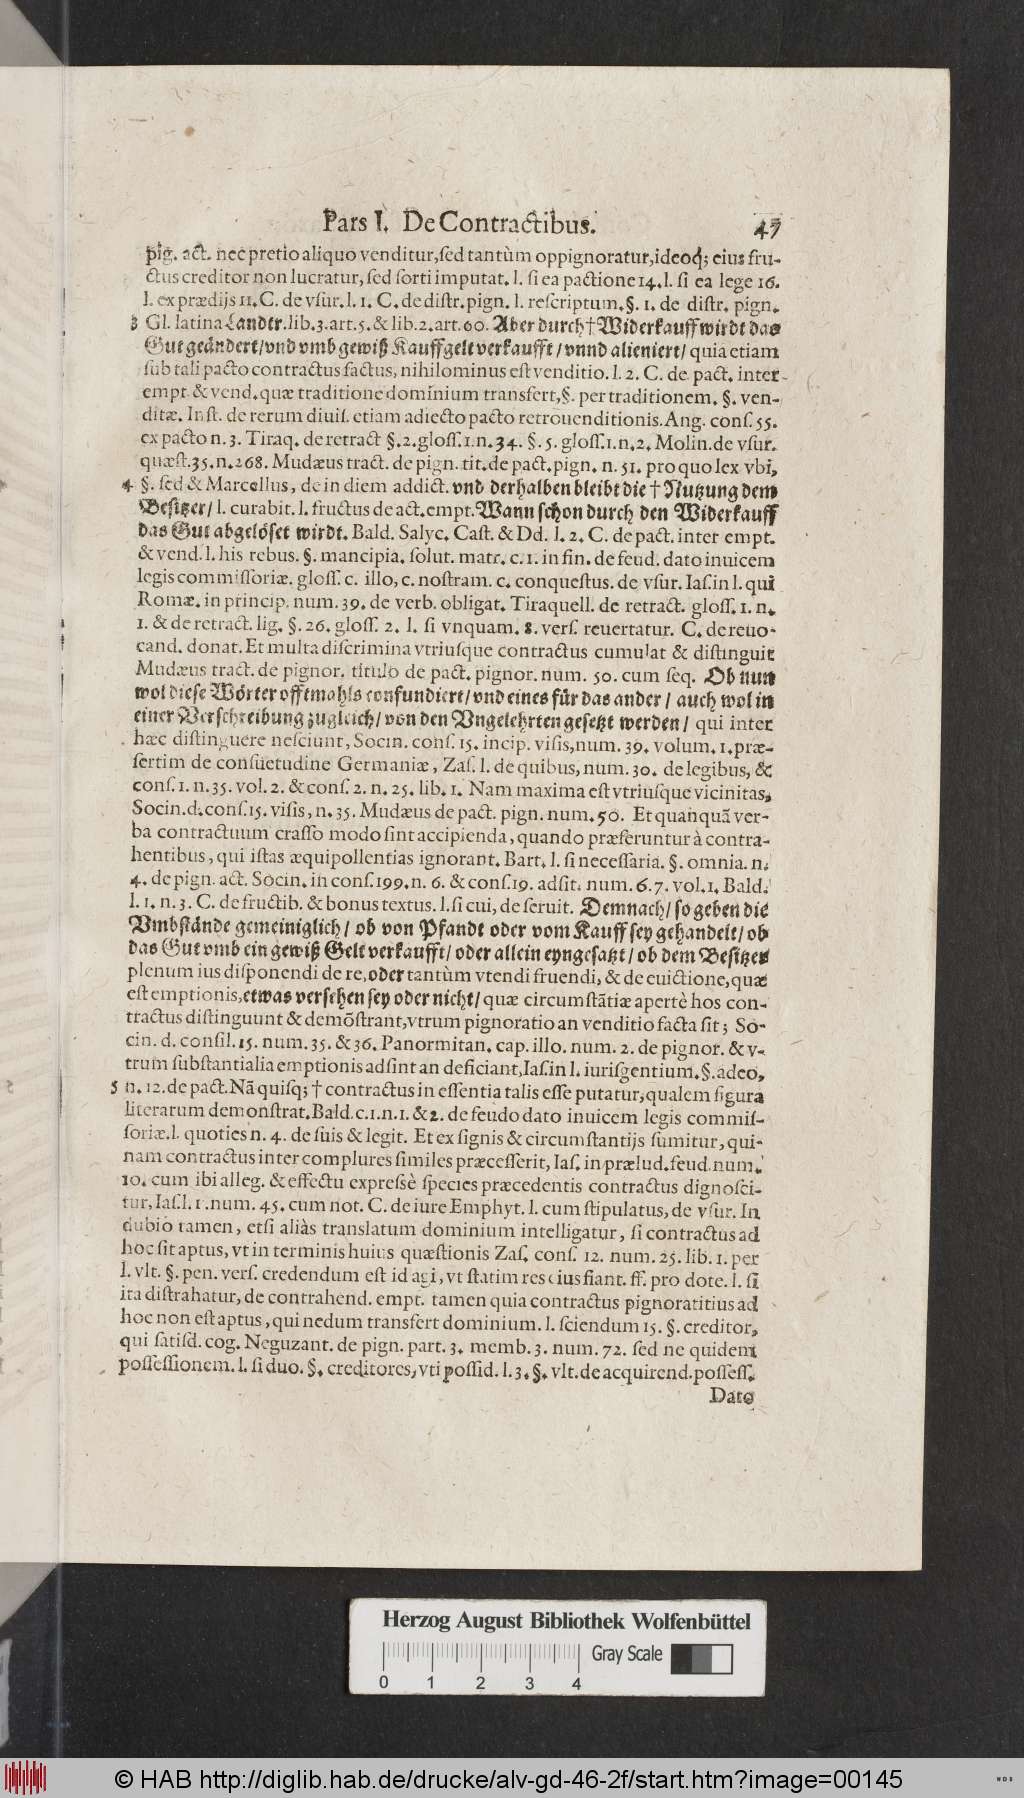 Pars I. De Contractibus. 47
pig. act. nec pretio aliquo venditur, sed tantùm oppignoratur, ideoq; eius fru-
ctus creditor non lucratur, sed sorti imputat. l. si ea pactione 14. l. si ea lege 16.
l. ex prædijs 11. C. de vsur. l. 1. C. de distr. pign. l. rescriptum. §. 1. de distr. pign.
3 Gl. latina Landtr. lib. 3. art. 5. & lib. 2. art. 60. Aber durch † Widerkauff wirdt das
Gut geändert / vnd vmb gewiß Kauffgelt verkaufft / vnnd alieniert / quia etiam
sub tali pacto contractus factus, nihilominus est venditio. l. 2. C. de pact. inter
empt & vend. quæ traditione dominium transfert, §. per traditionem. §. ven-
ditæ. Inst. de rerum diuis. etiam adiecto pacto retrouenditionis. Ang. cons. 55.
ex pacto n. 3. Tiraq. de retract §. 2. gloss. 1. n. 34. §. 5. gloss. 1. n. 2. Molin. de vsur.
quæst. 35. n. 268. Mudæus tract. de pign. tit. de pact. pign. n. 51. pro quo lex vbi,
4 §. sed & Marcellus, de in diem addict. vnd derhalben bleibt die † Nutzung dem
Besitzer / l. curabit. l. fructus de act. empt. Wann schon durch den Widerkauff
das Gut abgelöset wirdt. Bald. Salyc. Cast. & Dd. l. 2. C. de pact. inter empt.
& vend. l. his rebus. §. mancipia. solut. matr. c. 1. in fin. de feud. dato inuicem
legis commissoriæ. gloss. c. illo, c. nostram. c. conquestus. de vsur. Ias. in l. qui
Romæ. in princip. num. 39. de verb. obligat. Tiraquell. de retract. gloss. 1. n.
1. & de retract. lig. §. 26. gloss. 2. l. si vnquam. 8. vers. reuertatur. C. de reuo-
cand. donat. Et multa discrimina vtriusque contractus cumulat & distinguit
Mudæus tract. de pignor. titulo de pact. pignor. num. 50. cum seq. Ob nun
wol diese Wörter offtmahls confundiert / vnd eines für das ander / auch wol in
einer Verschreibung zugleich / von den Vngelehrten gesetzt werden / qui inter
hæc distinguere nesciunt, Socin. cons. 15. incip. visis, num. 39. volum. 1. præ-
sertim de consuetudine Germaniæ, Zas. l. de quibus, num. 30. de legibus, &
cons. 1. n. 35. vol. 2. & cons. 2. n. 25. lib. 1. Nam maxima est vtriusque vicinitas,
Socin. d. cons. 15. visis, n. 35. Mudæus de pact. pign. num. 50. Et quanquã ver-
ba contractuum crasso modo sint accipienda, quando præferuntur à contra-
hentibus, qui istas æquipollentias ignorant. Bart. l. si necessaria. §. omnia. n.
4. de pign. act. Socin. in cons. 199. n. 6. & cons. 19. adsit. num. 6. 7. vol. 1. Bald.
l. 1. n. 3. C. de fructib. & bonus textus. l. si cui, de seruit. Demnach / so geben die
Vmbstände gemeiniglich / ob von Pfandt oder vom Kauff sey gehandelt / ob
das Gut vmb ein gewiß Gelt verkaufft / oder allein eyngesatzt / ob dem Besitzer
plenum ius disponendi de re, oder tantùm vtendi fruendi, & de euictione, quæ
est emptionis, etwas versehen sey oder nicht / quæ circumstãtiæ apertè hos con-
tractus distinguunt & demõstrant, vtrum pignoratio an venditio facta sit; So-
cin. d. consil. 15. num. 35. & 36. Panormitan. cap. illo. num. 2. de pignor. & v-
trum substantialia emptionis adsint an deficiant, Ias. in l. iurisgentium. §. adeo,
5 n. 12. de pact. Nã quisq; † contractus in essentia talis esse putatur, qualem figura
literarum demonstrat. Bald. c. 1. n. 1. & 2. de feudo dato inuicem legis commis-
soriæ. l. quoties n. 4. de suis & legit. Et ex signis & circumstantijs sumitur, qui-
nam contractus inter complures similes præcesserit, Ias. in prælud. feud. num.
10. cum ibi alleg. & effectu expressè species præcedentis contractus dignosci-
tur, Ias. l. 1. num. 45. cum not. C. de iure Emphyt. l. cum stipulatus, de vsur. In
dubio tamen, etsi aliàs translatum dominium intelligatur, si contractus ad
hoc sit aptus, vt in terminis huius quæstionis Zas. cons. 12. num. 25. lib. 1. per
l. vlt. §. pen. vers. credendum est id agi, vt statim res eius fiant. ff. pro dote. l. si
ita distrahatur, de contrahend. empt. tamen quia contractus pignoratitius ad
hoc non est aptus, qui nedum transfert dominium. l. sciendum 15. §. creditor,
qui satisd. cog. Neguzant. de pign. part. 3. memb. 3. num. 72. sed ne quidem
possessionem. l. si duo. §. creditores, vti possid. l. 3. §. vlt. de acquirend. possess.
Dato
Herzog August Bibliothek Wolfenbüttel
Gray Scale
0 1 2 3 4
© HAB http://diglib.hab.de/drucke/alv-gd-46-2f/start.htm?image=00145